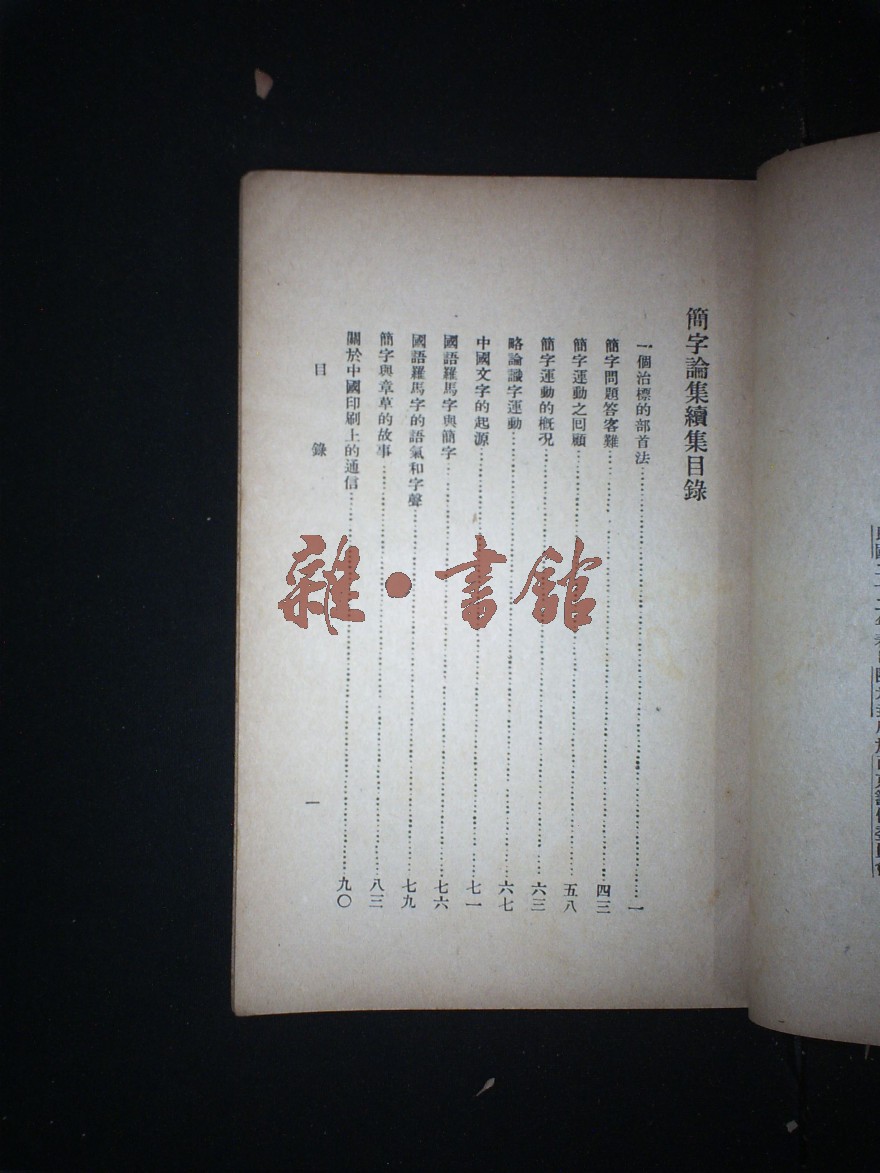 簡字論集續集目錄
一個治標的部首法……一
簡字問題答客難……四三
簡字運動之回顧……五八
簡字運動的概況……六三
略論識字運動……六七
中國文字的起源……七一
國語羅馬字與簡字……七六
國語羅馬字的語氣和字聲……七九
簡字與章草的故事……八三
關於中國印刷上的通信……九〇
目錄
一
雜·書館